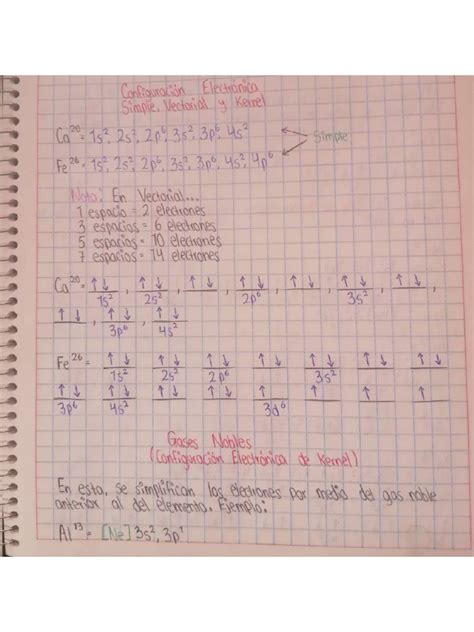 Configuración Electrónica
Simple, Vectorial y Kernel
Ca²⁰= 1s², 2s², 2p⁶, 3s², 3p⁶, 4s²
Simple
Fe²⁶= 1s², 2s², 2p⁶, 3s², 3p⁶, 4s², 4p⁶
Nota: En Vectorial...
1 espacio = 2 electrones
3 espacios = 6 electrones
5 espacios = 10 electrones
7 espacios = 14 electrones
Ca²⁰= ↑↓, ↑↓, ↑↓, ↑↓, ↑↓, ↑↓, ↑↓,
1s² 2s² 2p⁶ 3s²
↑↓, ↑↓, ↑↓
3p⁶ 4s²
Fe²⁶= ↑↓ ↑↓ ↑↓ ↑↓ ↑↓ ↑↓ ↑↓
1s² 2s² 2p⁶ 3s²
↑↓ ↑↓ ↑↓ ↑↓ ↑↓ ↑ ↑ ↑
3p⁶ 4s² 3d⁶
Gases Nobles
(Configuración Electrónica de Kernel)
En esta, se simplifican los electrones por medio del gas noble
anterior al del elemento. Ejemplo:
Al¹³= [Ne] 3s², 3p¹